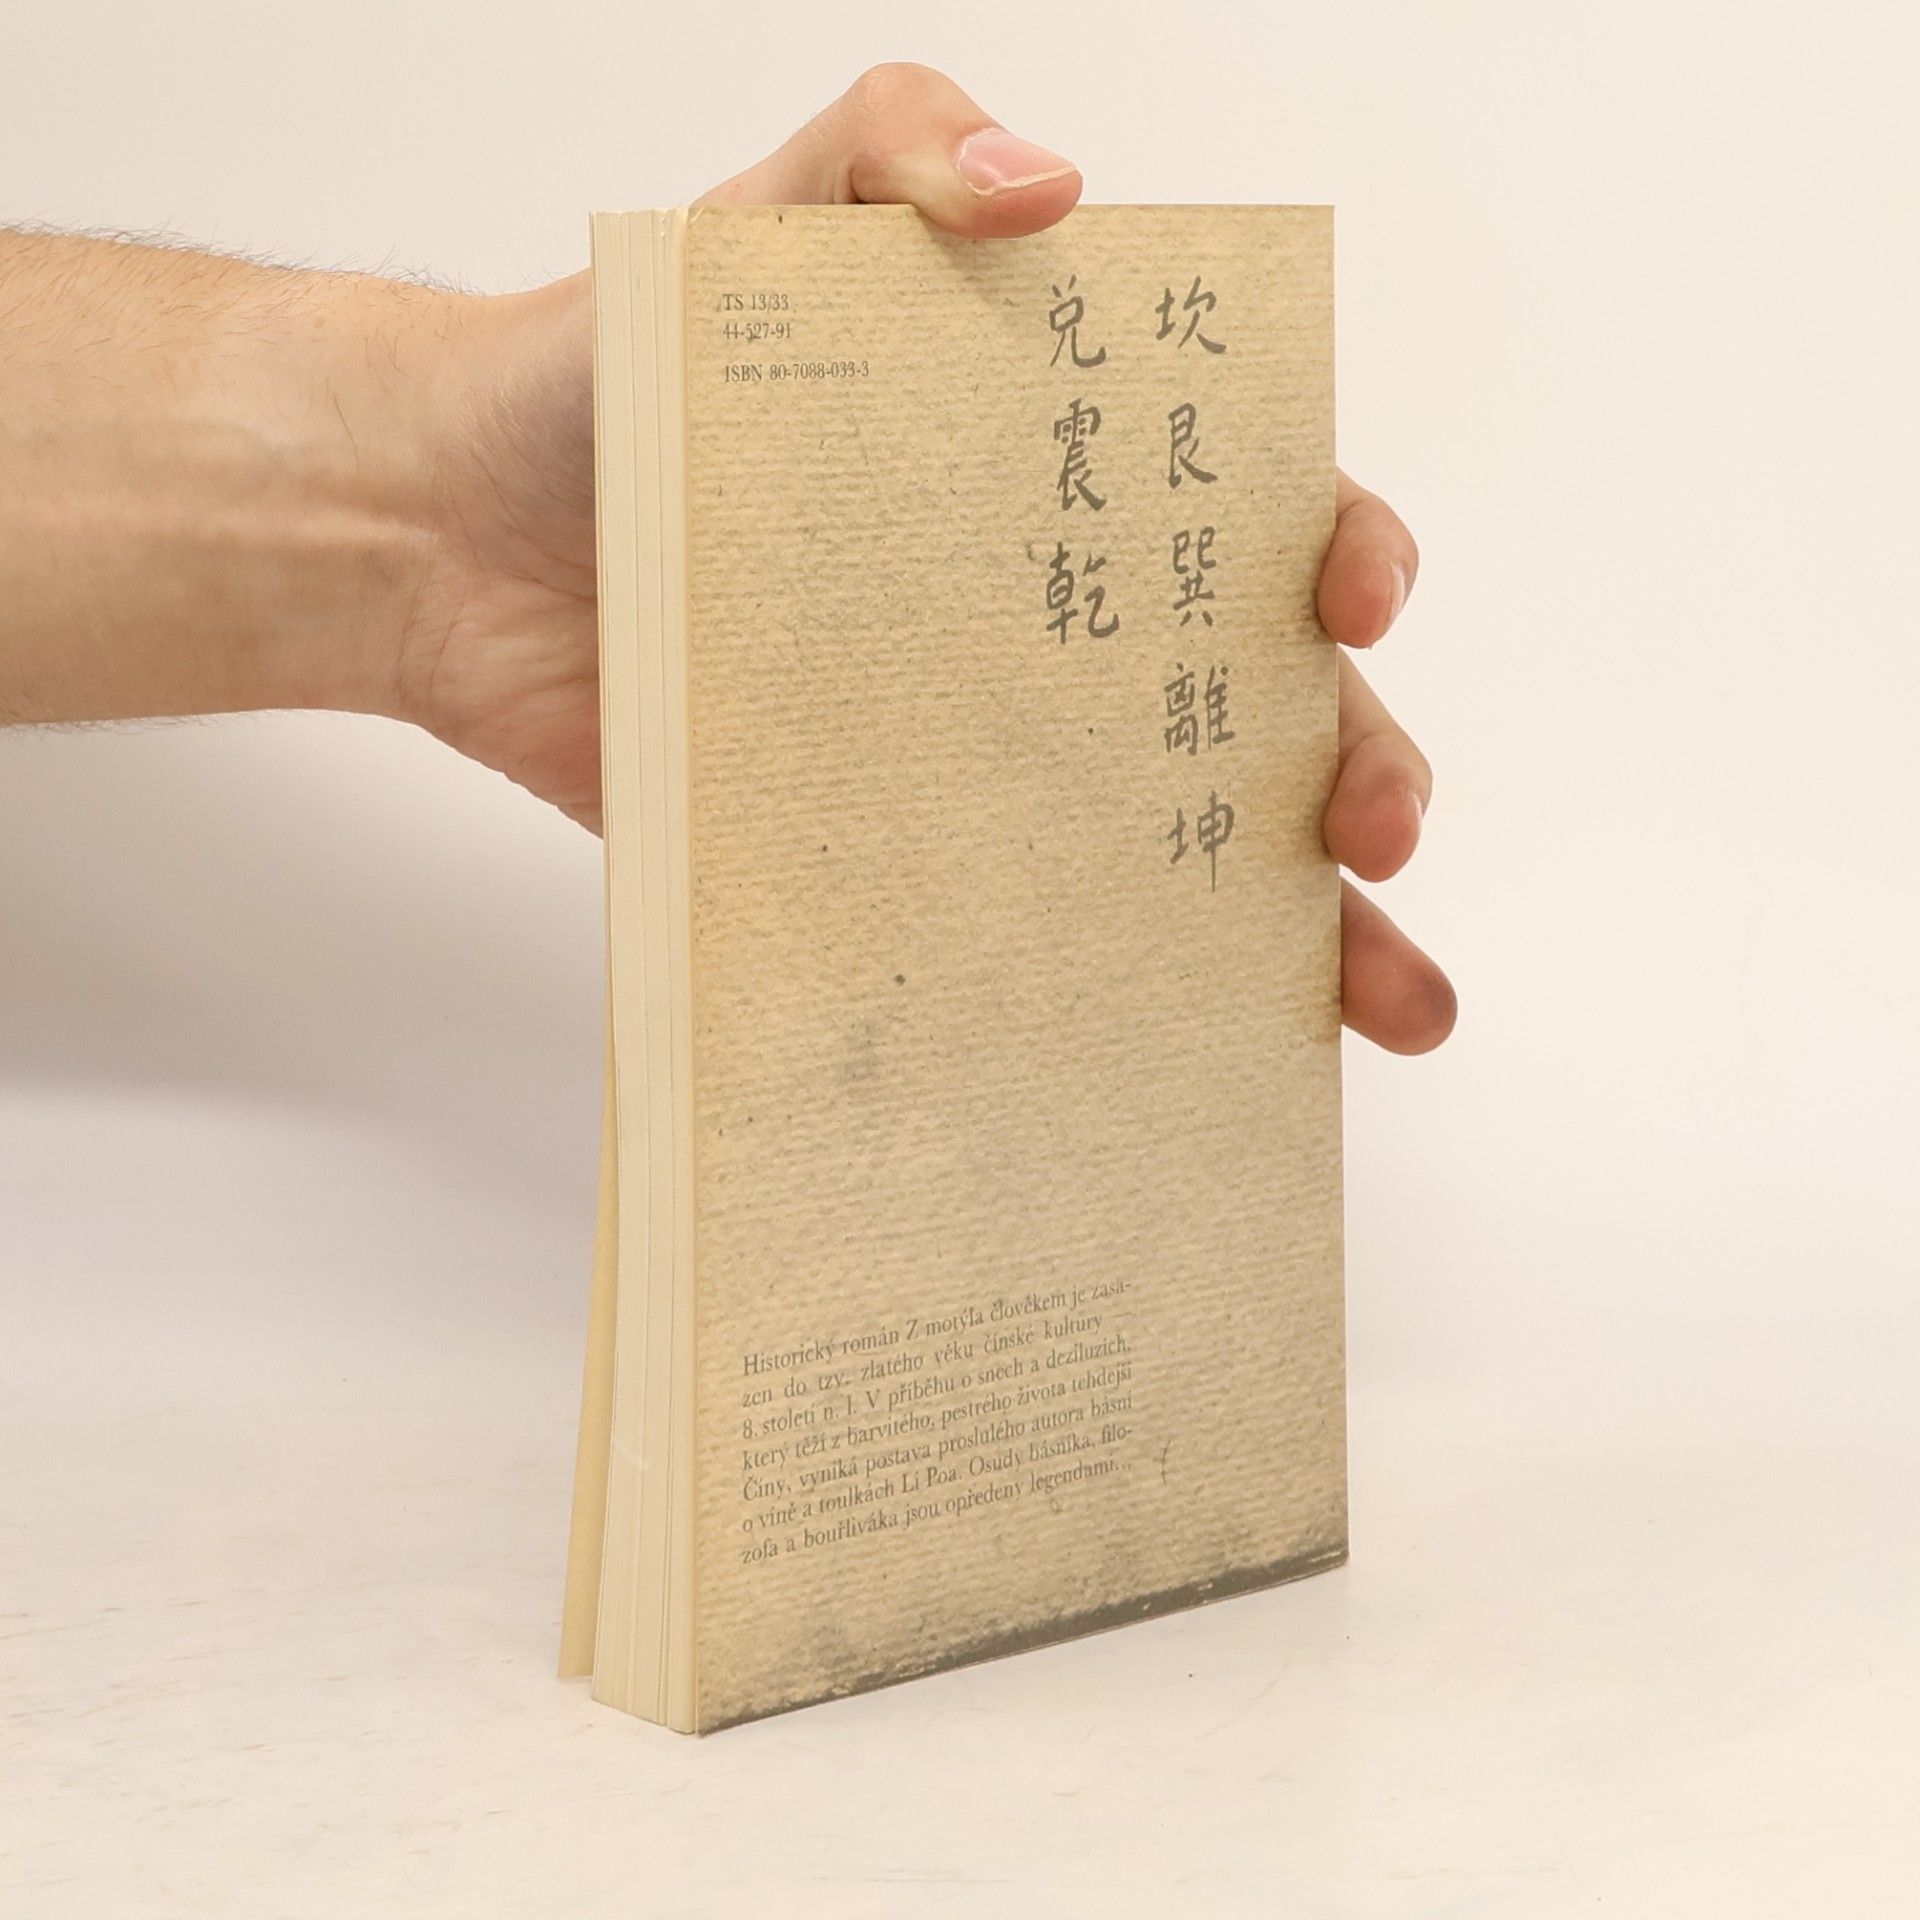 TS 13/33
44-527-91
ISBN 80-7088-033-3
坎艮巽離坤
兑震乾
Historický román Z motýla člověkem je zasa-
zen do tzv. zlatého věku čínské kultury —
8. století n. l. V příběhu o snech a deziluzích,
který těží z barvitého, pestrého života tehdejší
Číny, vyniká postava proslulého autora básní
o víně a toulkách Li Poa. Osudy básníka, filo-
zofa a bouřliváka jsou opředeny legendami...